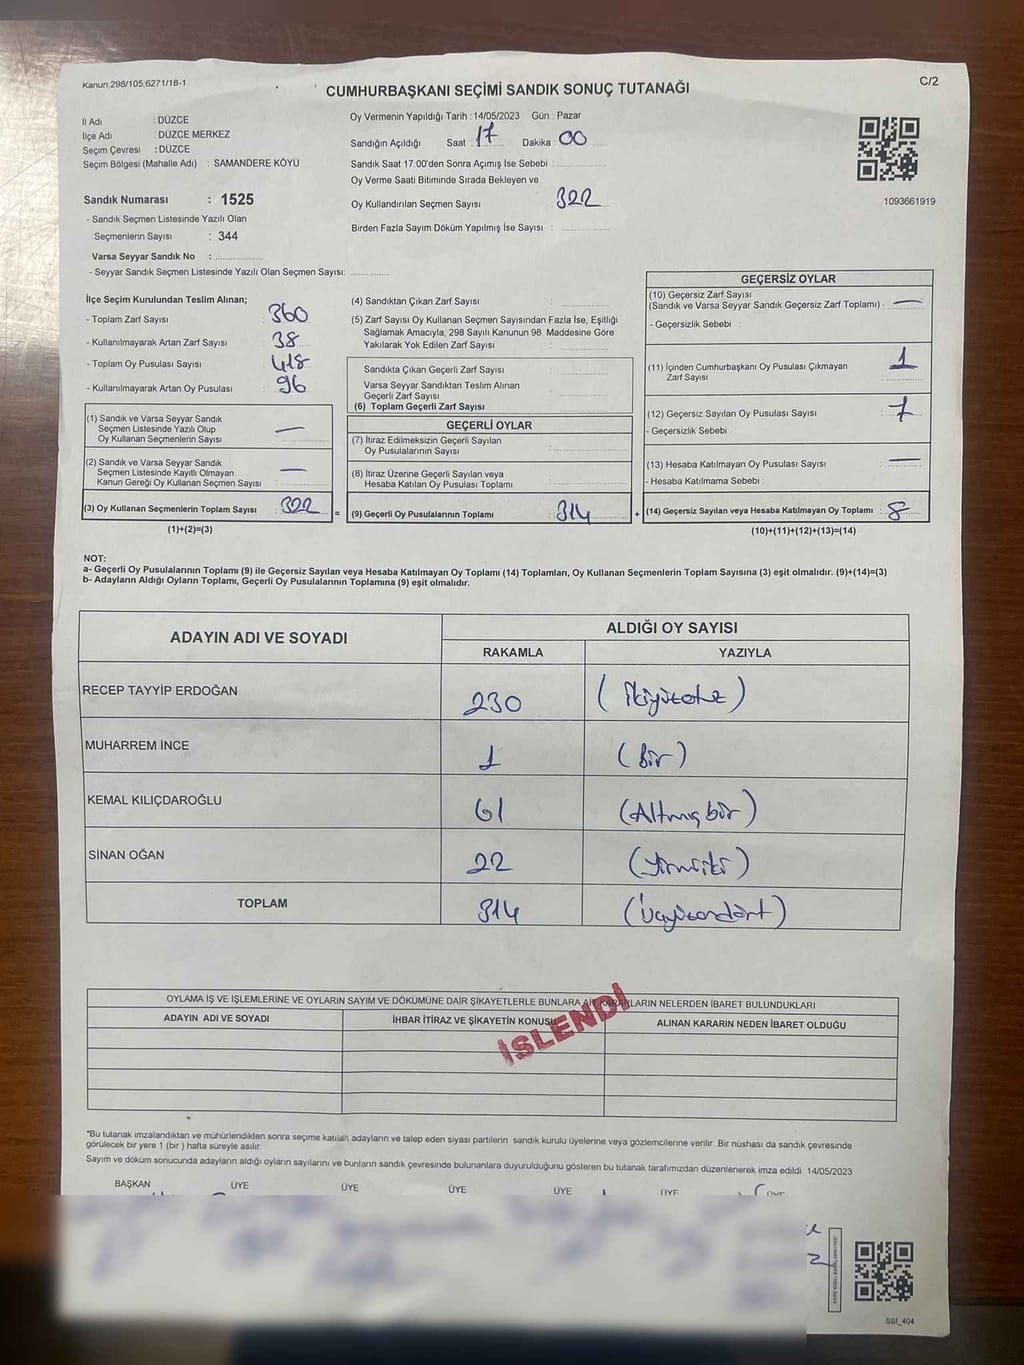 Kanun:298/105;6271/18-1
C/2
CUMHURBAŞKANI SEÇİMİ SANDIK SONUÇ TUTANAĞI
İl Adı : DÜZCE
İlçe Adı : DÜZCE MERKEZ
Seçim Çevresi : DÜZCE
Seçim Bölgesi (Mahalle Adı) : SAMANDERE KÖYÜ
Sandık Numarası : 1525
- Sandık Seçmen Listesinde Yazılı Olan
Seçmenlerin Sayısı : 344
Varsa Seyyar Sandık No :
- Seyyar Sandık Seçmen Listesinde Yazılı Olan Seçmen Sayısı:
Oy Vermenin Yapıldığı Tarih : 14/05/2023 Gün : Pazar
Sandığın Açıldığı Saat : 17 Dakika : 00
Sandık Saat 17:00'den Sonra Açımış İse Sebebi :
Oy Verme Saati Bitiminde Sırada Bekleyen ve
Oy Kullandırılan Seçmen Sayısı : 322
Birden Fazla Sayım Döküm Yapılmış İse Sayısı :
1093661919
İlçe Seçim Kurulundan Teslim Alınan;
- Toplam Zarf Sayısı : 360
- Kullanılmayarak Artan Zarf Sayısı : 38
- Toplam Oy Pusulası Sayısı : 418
- Kullanılmayarak Artan Oy Pusulası : 96
(1) Sandık ve Varsa Seyyar Sandık
Seçmen Listesinde Yazılı Olup
Oy Kullanan Seçmenlerin Sayısı : —
(2) Sandık ve Varsa Seyyar Sandık
Seçmen Listesinde Kayıtlı Olmayan
Kanun Gereği Oy Kullanan Seçmen Sayısı : —
(3) Oy Kullanan Seçmenlerin Toplam Sayısı : 322
(1)+(2)=(3)
=
(4) Sandıktan Çıkan Zarf Sayısı :
(5) Zarf Sayısı Oy Kullanan Seçmen Sayısından Fazla İse, Eşitliği
Sağlamak Amacıyla; 298 Sayılı Kanunun 98. Maddesine Göre
Yakılarak Yok Edilen Zarf Sayısı :
Sandıkta Çıkan Geçerli Zarf Sayısı :
Varsa Seyyar Sandıktan Teslim Alınan
Geçerli Zarf Sayısı :
(6) Toplam Geçerli Zarf Sayısı :
GEÇERLİ OYLAR
(7) İtiraz Edilmeksizin Geçerli Sayılan
Oy Pusulalarının Sayısı :
(8) İtiraz Üzerine Geçerli Sayılan veya
Hesaba Katılan Oy Pusulaları Toplamı :
(9) Geçerli Oy Pusulalarının Toplamı : 314
+
GEÇERSİZ OYLAR
(10) Geçersiz Zarf Sayısı
(Sandık ve Varsa Seyyar Sandık Geçersiz Zarf Toplamı) : —
- Geçersizlik Sebebi :
(11) İçinden Cumhurbaşkanı Oy Pusulası Çıkmayan
Zarf Sayısı : 1
(12) Geçersiz Sayılan Oy Pusulası Sayısı : 7
- Geçersizlik Sebebi :
(13) Hesaba Katılmayan Oy Pusulası Sayısı : —
- Hesaba Katılmama Sebebi :
(14) Geçersiz Sayılan veya Hesaba Katılmayan Oy Toplamı : 8
(10)+(11)+(12)+(13)=(14)
NOT:
a- Geçerli Oy Pusulalarının Toplamı (9) ile Geçersiz Sayılan veya Hesaba Katılmayan Oy Toplamı (14) Toplamları, Oy Kullanan Seçmenlerin Toplam Sayısına (3) eşit olmalıdır. (9)+(14)=(3)
b- Adayların Aldığı Oyların Toplamı, Geçerli Oy Pusulalarının Toplamına (9) eşit olmalıdır.
ADAYIN ADI VE SOYADI
ALDIĞI OY SAYISI
RAKAMLA YAZIYLA
RECEP TAYYİP ERDOĞAN 230 (İkiyüzotuz)
MUHARREM İNCE 1 (Bir)
KEMAL KILIÇDAROĞLU 61 (Altmışbir)
SİNAN OĞAN 22 (Yirmiiki)
TOPLAM 314 (Üçyüzondört)
OYLAMA İŞ VE İŞLEMLERİNE VE OYLARIN SAYIM VE DÖKÜMÜNE DAİR ŞİKAYETLERLE BUNLARA AİT KARARLARIN NELERDEN İBARET BULUNDUKLARI
ADAYIN ADI VE SOYADI İHBAR İTİRAZ VE ŞİKAYETİN KONUSU ALINAN KARARIN NEDEN İBARET OLDUĞU
İŞLENDİ
*Bu tutanak imzalandıktan ve mühürlendikten sonra seçime katılan adayların ve talep eden siyasi partilerin sandık kurulu üyelerine veya gözlemcilerine verilir. Bir nüshası da sandık çevresinde
görülecek bir yere 1 (bir) hafta süreyle asılır.
Sayım ve döküm sonucunda adayların aldığı oyların sayılarını ve bunların sandık çevresinde bulunanlara duyurulduğunu gösteren bu tutanak tarafımızdan düzenlenerek imza edildi. 14/05/2023
BAŞKAN ÜYE ÜYE ÜYE ÜYE ÜYE ÜYE
SSI_404